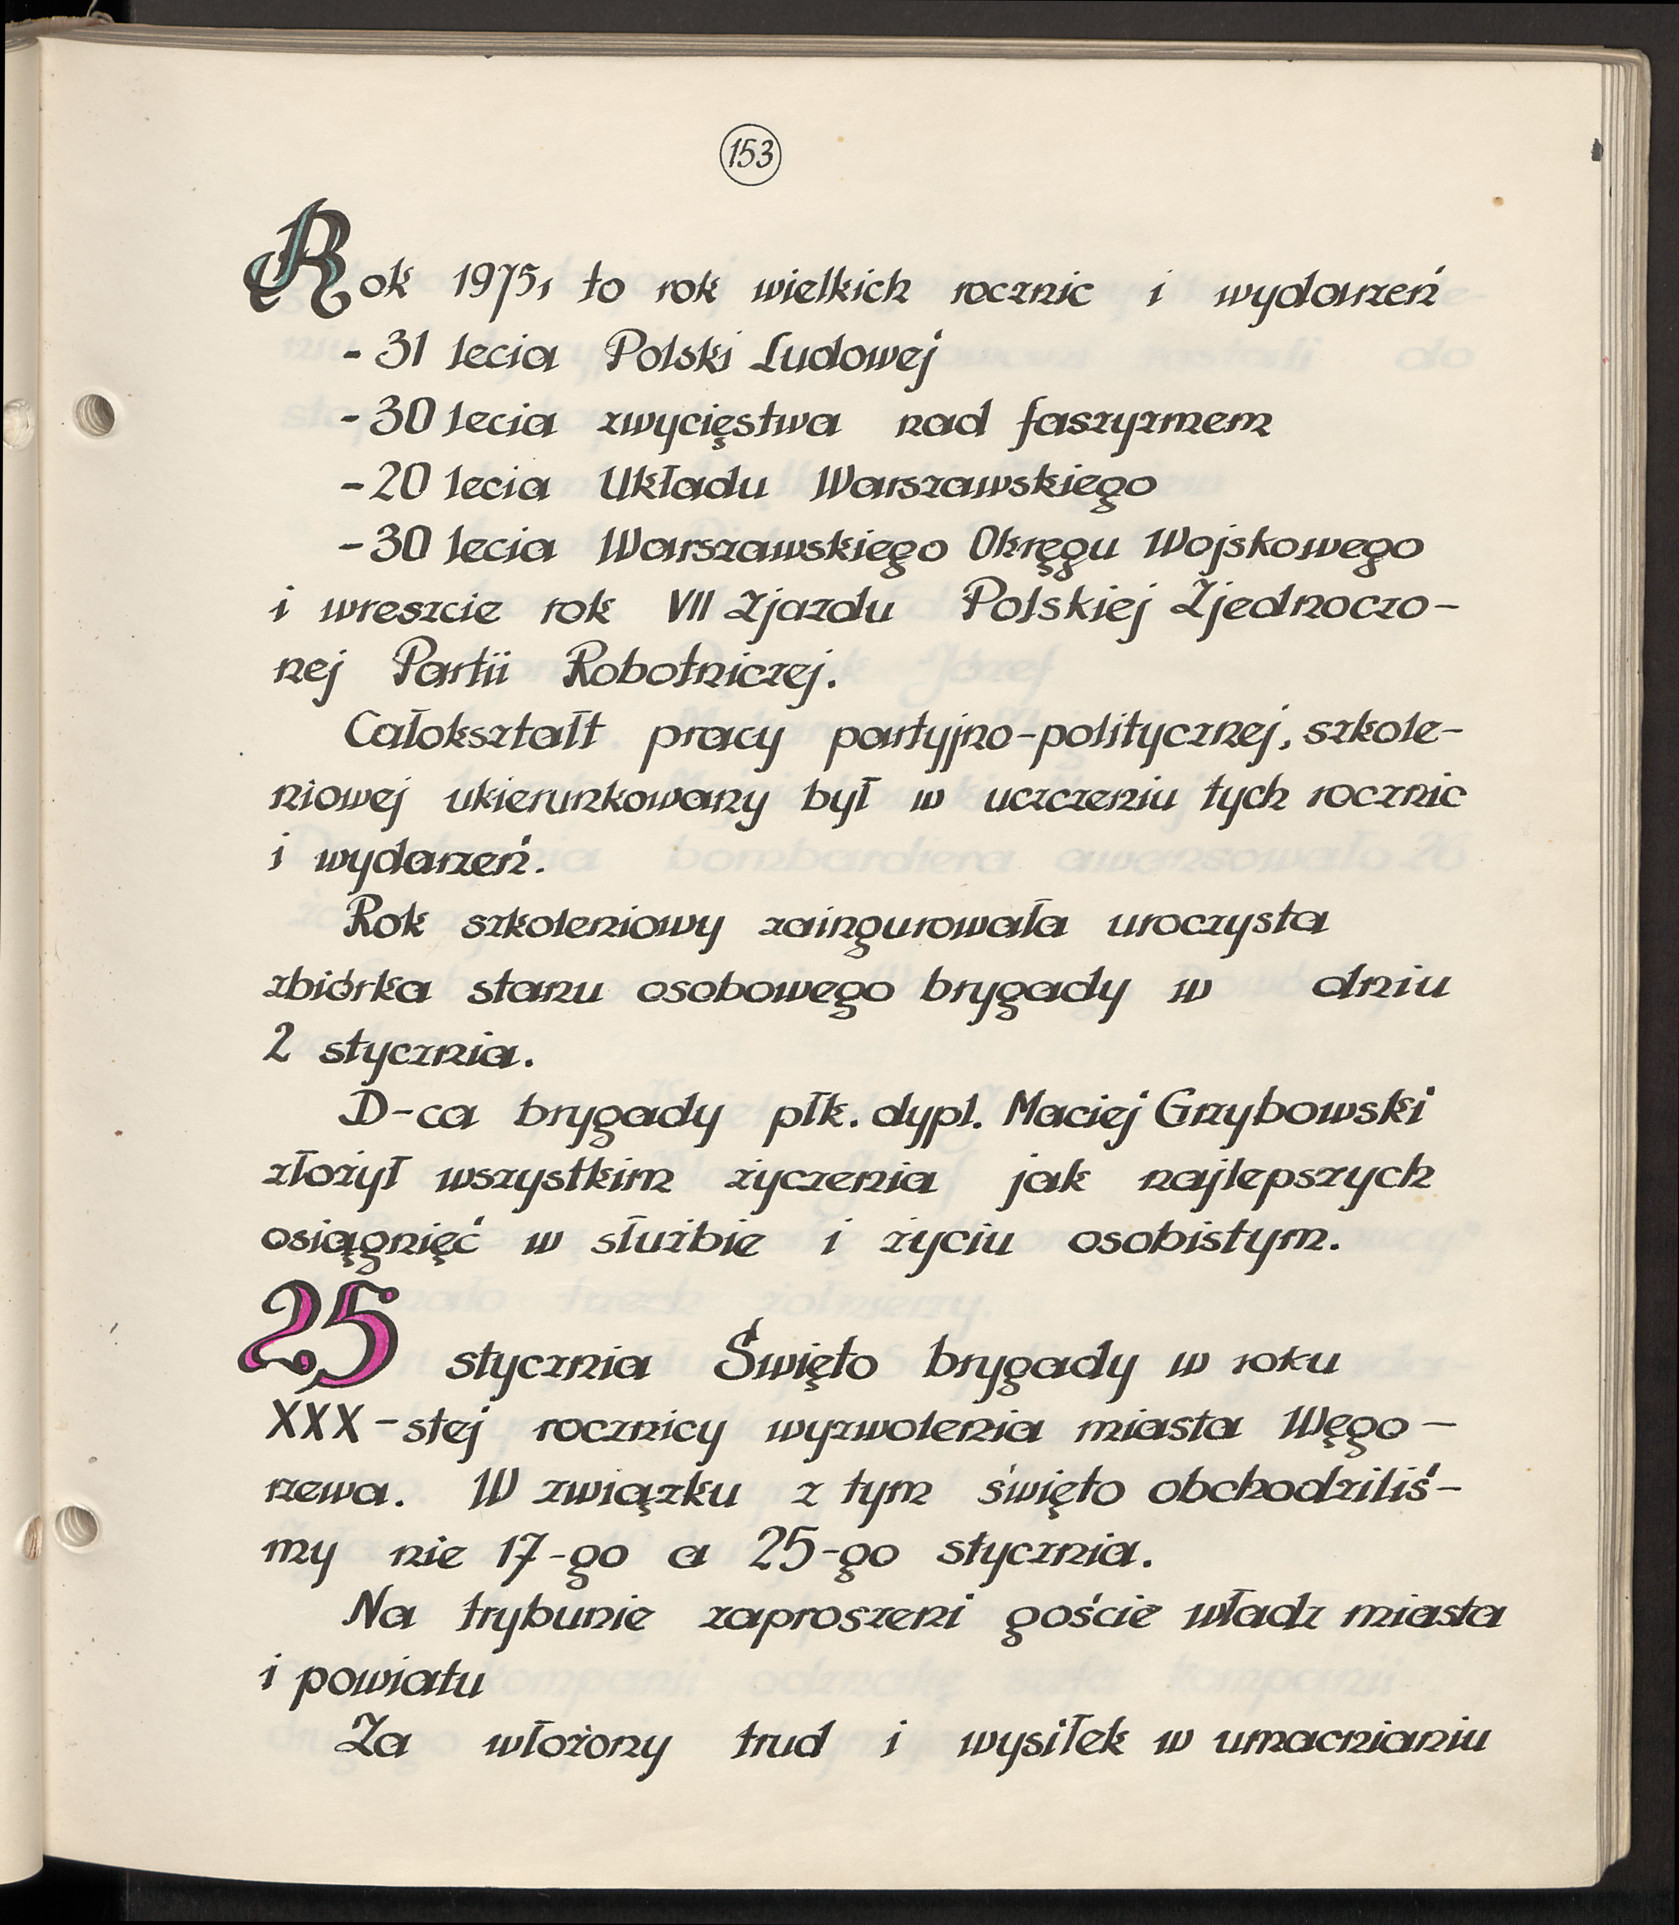 153
Rok 1975, to rok wielkich rocznic i wydarzeń
- 31 lecia Polski Ludowej
- 30 lecia zwycięstwa nad faszyzmem
- 20 lecia Układu Warszawskiego
- 30 lecia Warszawskiego Okręgu Wojskowego
i wreszcie rok VII Zjazdu Polskiej Zjednoczo-
nej Partii Robotniczej.
Całokształt pracy partyjno-politycznej, szkole-
niowej ukierunkowany był w uczczeniu tych rocznic
i wydarzeń.
Rok szkoleniowy zaingurowała uroczysta
zbiórka stanu osobowego brygady w dniu
2 stycznia.
D-ca brygady płk. dypl. Maciej Grzybowski
złożył wszystkim życzenia jak najlepszych
osiągnięć w służbie i życiu osobistym.
25 stycznia Święto brygady w roku
XXX-stej rocznicy wyzwolenia miasta Węgo-
rzewa. W związku z tym święto obchodziliś-
my nie 17-go a 25-go stycznia.
Na trybunie zaproszeni goście władz miasta
i powiatu
Za włożony trud i wysiłek w umacnianiu